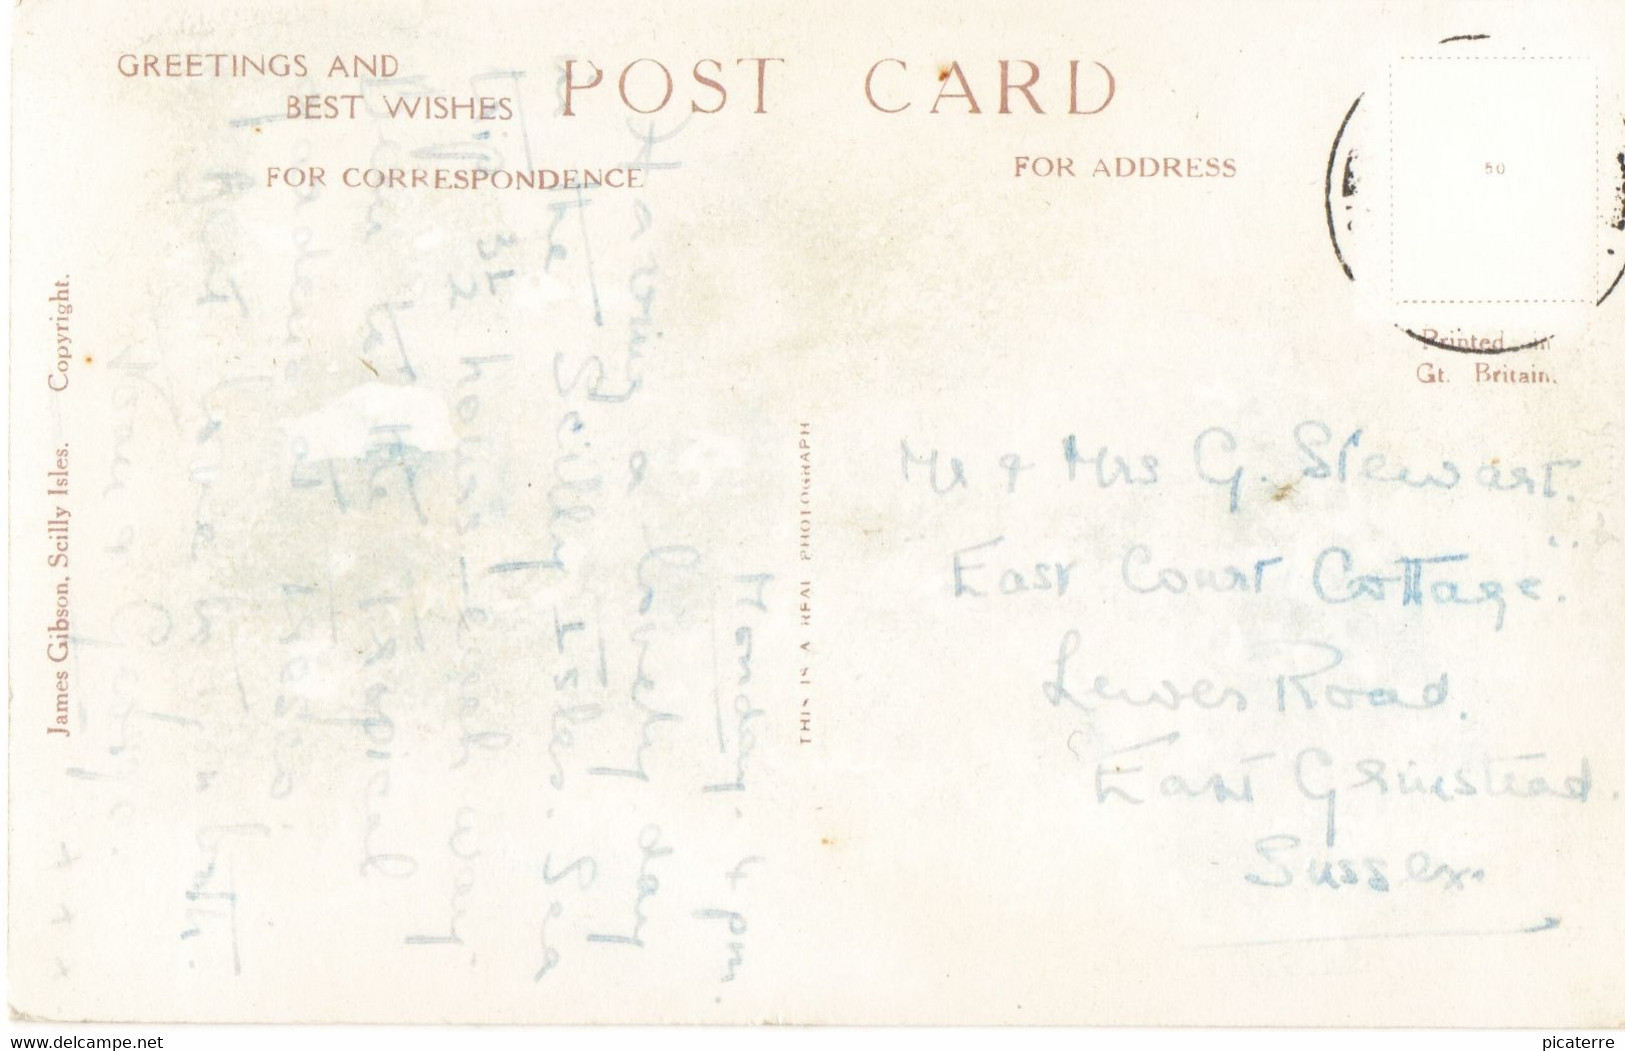 GREETINGS AND
BEST WISHES
POST CARD
FOR CORRESPONDENCE
FOR ADDRESS
50
Printed in
Gt. Britain.
James Gibson, Scilly Isles. Copyright.
THIS IS A REAL PHOTOGRAPH
Monday. 4 pm.
Having a lovely day
in the Scilly Isles. Sea
trip 3½ hours - each way
Been to the tropical
gardens at Tresco
Mr & Mrs G. Stewart.
East Court Cottage.
Lewes Road.
East Grinstead.
Sussex.
www.delcampe.net
picaterre